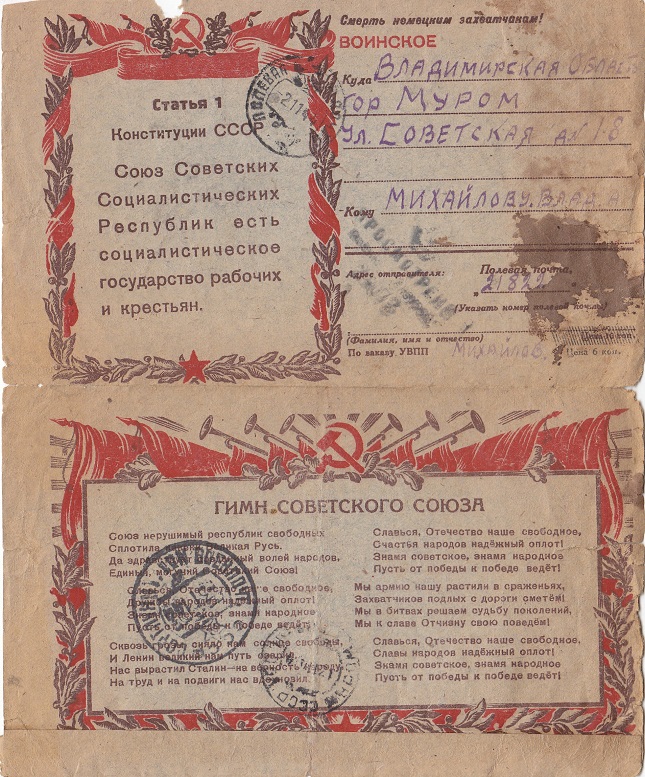 Смерть немецким захватчикам!
ВОИНСКОЕ
Куда ВЛАДИМИРСКАЯ
ГОР МУРОМ
УЛ. СОВЕТСКАЯ
Кому МИХАЙЛОВУ
Адрес отправителя: Полевая почта
(Указать номер полевой почты)
(Фамилия, имя и отчество)
По заказу УВПП МИХАЙЛОВ Цена 6 коп.
Статья 1
Конституции СССР
Союз Советских
Социалистических
Республик есть
социалистическое
государство рабочих
и крестьян.
ПОЛЕВАЯ
ГИМН СОВЕТСКОГО СОЮЗА
Союз нерушимый республик свободных
Сплотила Великая Русь.
Да здравствует волей народов,
Единый, могучий Союз!
Славься, Отечество наше свободное,
Дружбы народов надёжный оплот!
Знамя советское, знамя народное
Пусть от победы к победе ведёт!
Сквозь грозы сияло нам солнце свободы,
И Ленин великий нам путь озарил.
Нас вырастил Сталин—на верность народу
На труд и на подвиги нас вдохновил.
Славься, Отечество наше свободное,
Счастья народов надёжный оплот!
Знамя советское, знамя народное
Пусть от победы к победе ведёт!
Мы армию нашу растили в сраженьях,
Захватчиков подлых с дороги сметём!
Мы в битвах решаем судьбу поколений,
Мы к славе Отчизну свою поведём!
Славься, Отечество наше свободное,
Славы народов надёжный оплот!
Знамя советское, знамя народное
Пусть от победы к победе ведёт!